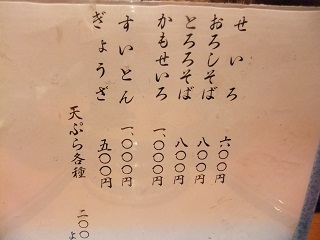 せいろ 六〇〇円
おろしそば 八〇〇円
とろろそば 八〇〇円
かもせいろ 一、〇〇〇円
すいとん 一、〇〇〇円
ぎょうざ 五〇〇円
天ぷら各種 二〇〇
よ